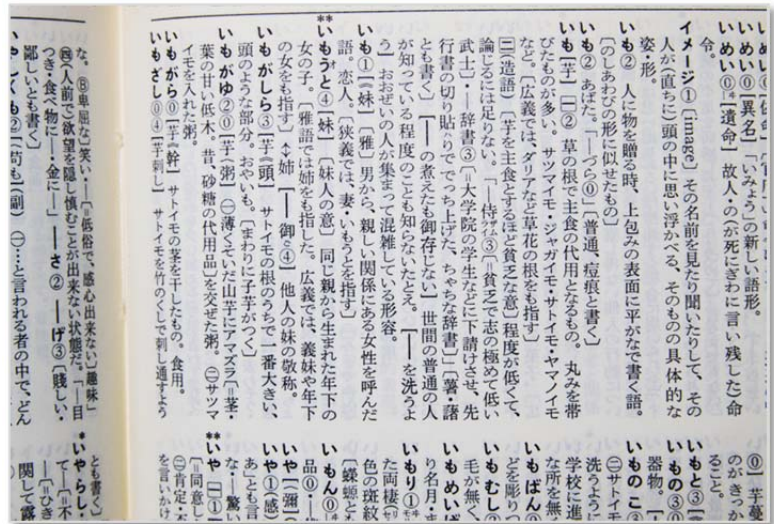 いめい⓪【異名】「いみょう」の新しい語形。
いめい⓪【遺命】故人・の(が死にぎわに言い残した)命
令。
イメージ①〔image〕その名前を見たり聞いたりして、その
人が(直ちに)頭の中に思い浮かべる、そのものの具体的な
姿・形。
いも② 人に物を贈る時、上包みの表面に平がなで書く語。
〔のしあわびの形に似せたもの〕
いも② あばた。「―づら⓪」〔普通、痘痕と書く〕
いも【芋】㊀② 草の根で主食の代用となるもの。丸みを帯
びたものが多い。サツマイモ・ジャガイモ・サトイモ・ヤマノイモ
など。〔広義では、ダリアなど草花の根をも指す〕
㊁(造語)〔芋を主食とするほど貧乏な意〕程度が低くて
論じるには足りない。「―侍③〔=貧乏で志の極めて低い
武士〕・―辞書③〔=大学院の学生などに下請けさせ、先
行書の切り貼りででっち上げた、ちゃちな辞書〕」〔薯・藷
とも書く〕【―の煮えたも御存じない】世間の普通の人
が知っている程度のことも知らないたとえ。【―を洗うよ
う】おおぜいの人が集まって混雑している形容。
いも①【妹】〔雅〕男から、親しい関係にある女性を呼んだ
語。恋人。〔狭義では、妻・いもうとを指す〕
**いもうと④【妹】〔妹人の意〕同じ親から生まれた年下の
女の子。〔雅語では姉をも指した。広義では、義妹や年下
の女をも指す〕↔姉【―御④】他人の妹の敬称。
いもがしら③【芋頭】サトイモの根のうちで一番大きい、
頭のような部分。おやいも。〔まわりに子芋がつく〕
いもがゆ②⓪【芋粥】㊀薄くそいだ山芋にアマズラ〔=茎・
葉の甘い低木。昔、砂糖の代用品〕を交ぜた粥。㊁サツマ
イモを入れた粥。
いもがら⓪【芋幹】サトイモの茎を干したもの。食用。
いもざし⓪④【芋刺し】サトイモを竹のくしで刺し通すよう
⓪】芋蔓
のがきっか
ること。
いもと③【
いもの③⓪
器物。【
いものこ③
㊁サトイモ
洗うように
学校に進
な所を無
いもばん⓪
どを彫りつ
いもむし②
毛が無く、
いもめいげ
り名月・ま
いもり①
た両棲
色の斑紋
〔蠑螈とも
いもん⓪【
品⓪・―
いや【彌】
いや①(感)
あとも言
な・―驚い
**いや【㊀①
〔=同意し
㊁肯定・不
を言いかけ
とも書く〕
*いやらし・
て―〔=不
―〔=ひき
関して露
な。Ⓑ卑屈な〕笑い・―〔=低俗で、感心出来ない〕趣味」
㊃(人前で)欲望を隠し慎むことが出来ない状態だ。「―目
つき・食べ物に―・金に―」―さ② ―げ③〔賤しい・
鄙しいとも書く〕
いやしくも②【苟も】(副) ㊀…と言われる者の中で、どん